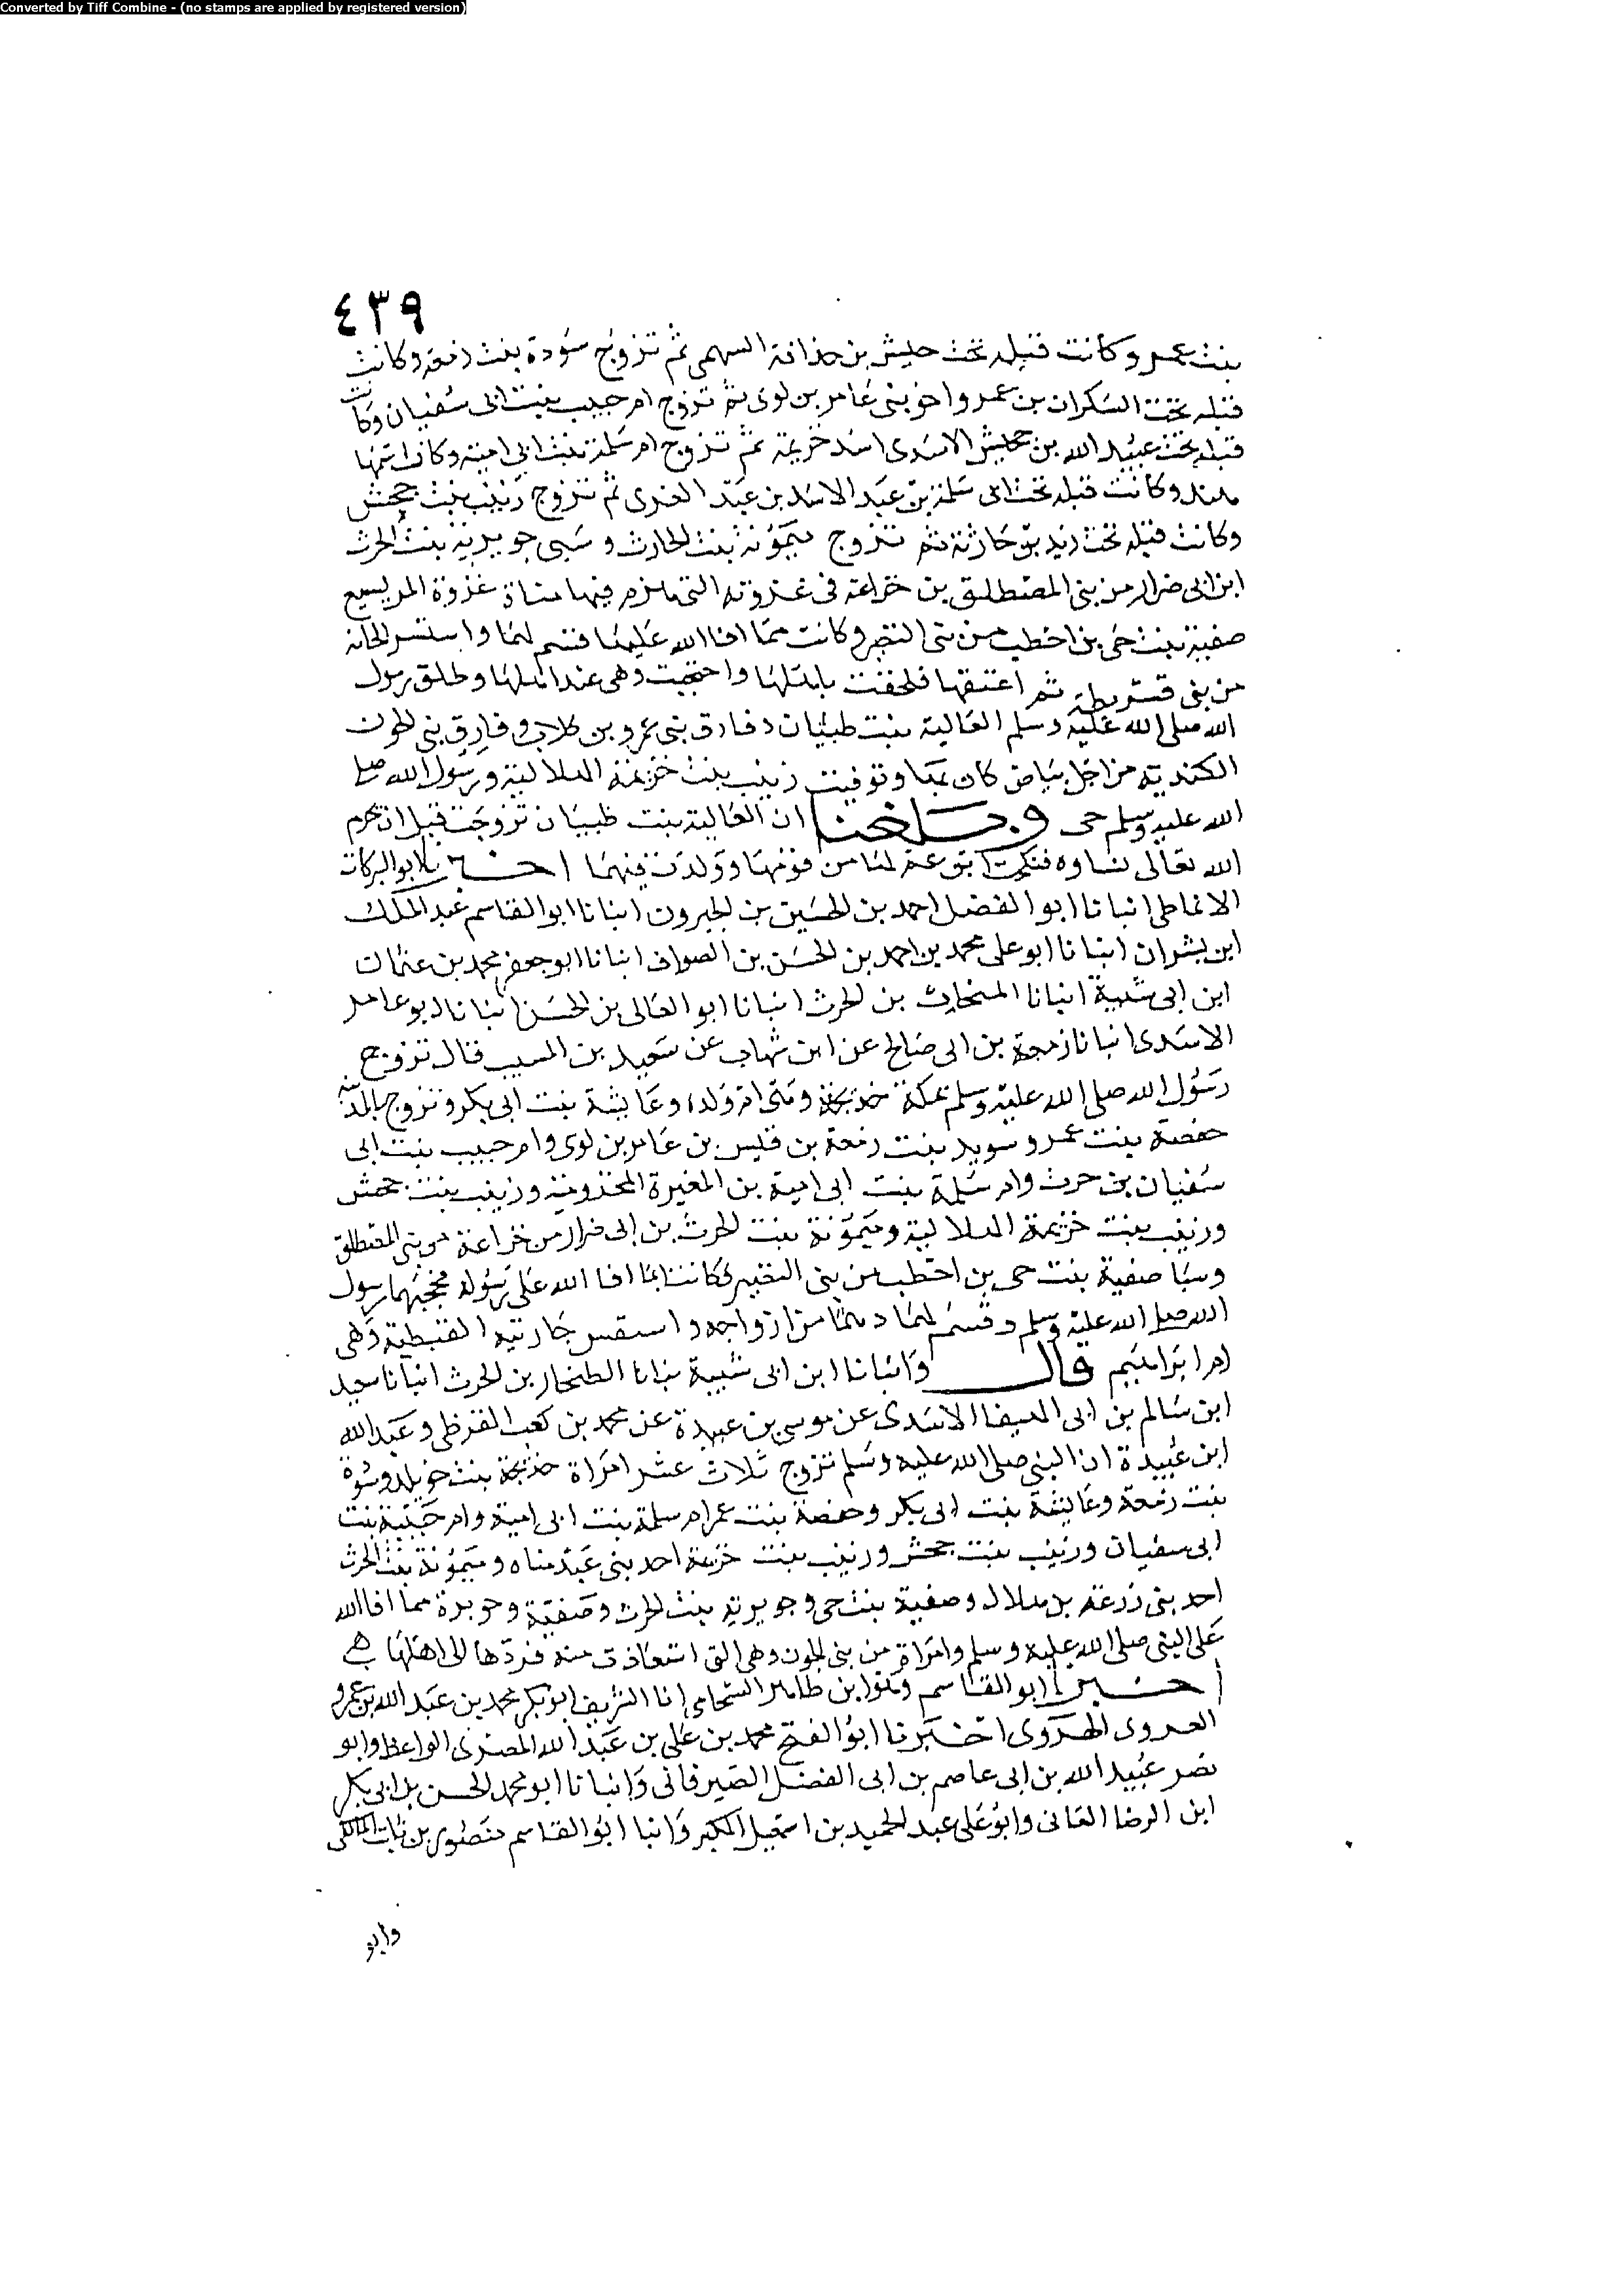 Converted by Tiff Combine - (no stamps are applied by registered version)
٤٣٩
بنت عمر وكانت قبله تحت حليش بن حذافة السهمى ثم تزوج سودة بنت زمعة وكانت
قبله تحت السكران بن عمرو اخو بنى عامر بن لوى ثم تزوج ام حبيب بنت ابى سفيان وكانت
قبله تحت عبيد الله بن جحش الاسدى اسد خزيمة ثم تزوج ام سلمة بنت ابى امية وكان اسمها
هند وكانت قبله تحت ابى سلمة بن عبد الاسد بن عبد العزى ثم تزوج زينب بنت جحش
وكانت قبله تحت زيد بن حارثة ثم تزوج ميمونة بنت الحارث وسبى جويرية بنت الحرث
ابن ابى ضرار من بنى المصطلق بن خزاعة فى غزوته التى هزم فيها مناة غزوة المريسيع
صفية بنت حى بن اخطب من بنى النضير وكانت مما افا الله عليه فقسم لهما واستسر
من بنى قريظة ثم اعتقها فلحقت باهلها واحتجبت وهى عند اهلها وطلق رسول
الله صلى الله عليه وسلم العالية بنت ظبيان وفارق بنى عمرو بن كلاب وفارق بنى الجون
الكندية من اجل بياض كان بها وتوفيت زينب بنت خزيمة الهلالية ورسول الله صلى
الله عليه وسلم حى وبلغنا ان العالية بنت ظبيان تزوجت قبل ان يحرم
الله تعالى نساوه فنكحت ابن عم لها من قومها وولدت فيهما اخبرنا ابو البركات
الانماطى انبانا ابو الفضل احمد بن الحسين بن الخيرون انبانا ابو القاسم عبد الملك
ابن بشران انبانا ابو على محمد بن احمد بن الحسن بن الصواف انبانا ابو جعفر محمد بن عثمان
ابن ابى شيبة انبانا المنخاب بن الحرث انبانا ابو العالى بن الحسن انبانا ابو عامر
الاسدى انبانا زمعة بن ابى صالح عن ابن شهاب عن سعيد بن المسيب قال تزوج
رسول الله صلى الله عليه وسلم بمكة خديجة وهى ام ولده وعايشة بنت ابى بكر وتزوج بالمدينة
حفصة بنت عمر وسويد بنت زمعة بن قيس بن عامر بن لوى وام حبيب بنت ابى
سفيان بن حرث وام سلمة بنت ابى امية بن المغيرة المخزومية وزينب بنت جحش
وزينب بنت خزيمة الهلالية وميمونة بنت الحرث بن ابى ضرار من خزاعة من بنى المصطلق
وسبا صفية بنت حى بن اخطب من بنى النضير فكانتا مما افا الله على رسوله فحجبهما رسول
الله صلى الله عليه وسلم وقسم لهما وهما من ازواجه واستسر جاريته القبطية وهى
ام ابراهيم قال وانبانا ابن ابى شيبة نبانا المنجاب بن الحرث انبانا سعيد
ابن سالم بن ابى الهيفا الاسدى عن موسى بن عبيدة عن محمد بن كعب القرظى وعبد الله
ابن عبيدة ان النبى صلى الله عليه وسلم تزوج ثلاث عشر امراة خديجة بنت خويلد وسودة
بنت زمعة وعايشة بنت ابى بكر وحفصة بنت عمر ام سلمة بنت ابى امية وام حبيبة بنت
ابى سفيان وزينب بنت جحش وزينب بنت خزيمة احد بنى عبد مناه وميمونة بنت الحرث
احد بنى زرعة بن هلال وصفية بنت حى وجويرية بنت الحرث وصفية وجويرة مما افا الله
على النبى صلى الله عليه وسلم وامراة من بنى الجون وهى التى استعاذت منه فردها الى اهلها
اخبرنا ابو القاسم بن طاهر الشحامى انا الشريف ابو بكر محمد بن عبد الله بن عمرو
العروى الهروى اخبرنا ابو الفتح محمد بن على بن عبد الله المصرى الواعظ وابو
نصر عبيد الله بن ابى عاصم بن ابى الفضل الصيرفانى وانبانا ابو محمد الحسن بن ابى بكر
ابن الرضا وابو على عبد الحميد بن اسمعيل وانبا ابو القاسم منصور بن ثابت المالكى
وابو